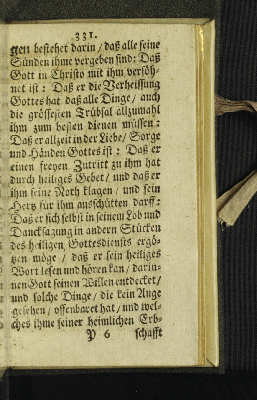 331.
gen bestehet darin / daß alle seine
Sünden ihme vergeben sind: Daß
Gott in Christo mit ihm versöh-
net ist: Daß er die Verheissung
Gottes hat daß alle Dinge / auch
die grössesten Trübsal allzumahl
ihm zum besten dienen müssen:
Daß er allzeit in der Liebe / Sorge
und Händen Gottes ist: Daß er
einen freyen Zutritt zu ihm hat
durch heiliges Gebet / und daß er
ihm seine Noth klagen / und sein
Hertz für ihm ausschütten darff:
Daß er sich selbst in seinem Lob und
Dancksagung in andern Stücken
des heiligen Gottesdiensts ergö-
tzen möge / daß er sein heiliges
Wort lesen und hören kan / darin-
nen Gott seinen Willen entdecket /
und solche Dinge / die kein Auge
gesehen / offenbaret hat / und wel-
ches ihme seiner heimlichen Erb-
P 6 schafft